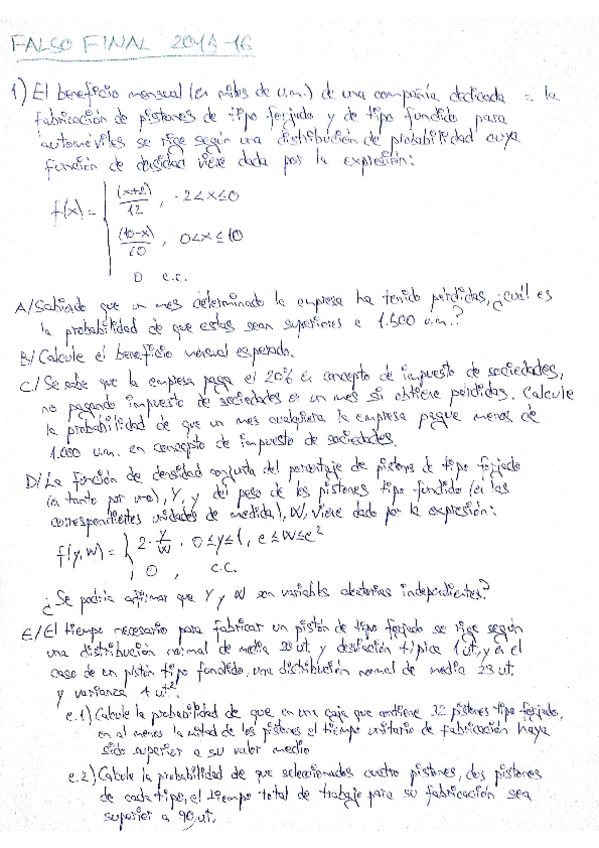 FALSO FINAL 2015-16
1) El beneficio mensual (en miles de u.m.) de una compañía dedicada a la
fabricación de pistones de tipo forjado y de tipo fundido para
automóviles se rige según una distribución de probabilidad cuya
función de densidad viene dada por la expresión:
f(x) = { (x+2)/12 , -2<x≤0
(10-x)/60 , 0<x≤10
0 c.c.
A/ Sabiendo que un mes determinado la empresa ha tenido pérdidas, ¿cuál es
la probabilidad de que estas sean superiores a 1.500 u.m.?
B/ Calcule el beneficio mensual esperado.
C/ Se sabe que la empresa paga el 20% en concepto de impuesto de sociedades,
no pagando impuesto de sociedades en un mes si obtiene pérdidas. Calcule
la probabilidad de que un mes cualquiera la empresa pague menos de
1.000 u.m. en concepto de impuesto de sociedades.
D/ La función de densidad conjunta del porcentaje de pistones de tipo forjado
(en tanto por uno), Y, y del peso de los pistones tipo fundido (en las
correspondientes unidades de medida), W, viene dado por la expresión:
f(y,w) = { 2·y/w , 0≤y≤1, e≤w≤e²
0 , c.c.
¿Se podría afirmar que Y y W son variables aleatorias independientes?
E/ El tiempo necesario para fabricar un pistón de tipo forjado se rige según
una distribución normal de media ut y desviación típica 1 ut, y en el
caso de un pistón tipo fundido, una distribución normal de media 23 ut.
y varianza 1 ut².
e.1) Calcule la probabilidad de que, en una caja que contiene 32 pistones tipo forjado,
en al menos la mitad de los pistones el tiempo unitario de fabricación haya
sido superior a su valor medio
e.2) Calcule la probabilidad de que seleccionados cuatro pistones, dos pistones
de cada tipo, el tiempo total de trabajo para su fabricación sea
superior a 90 ut.